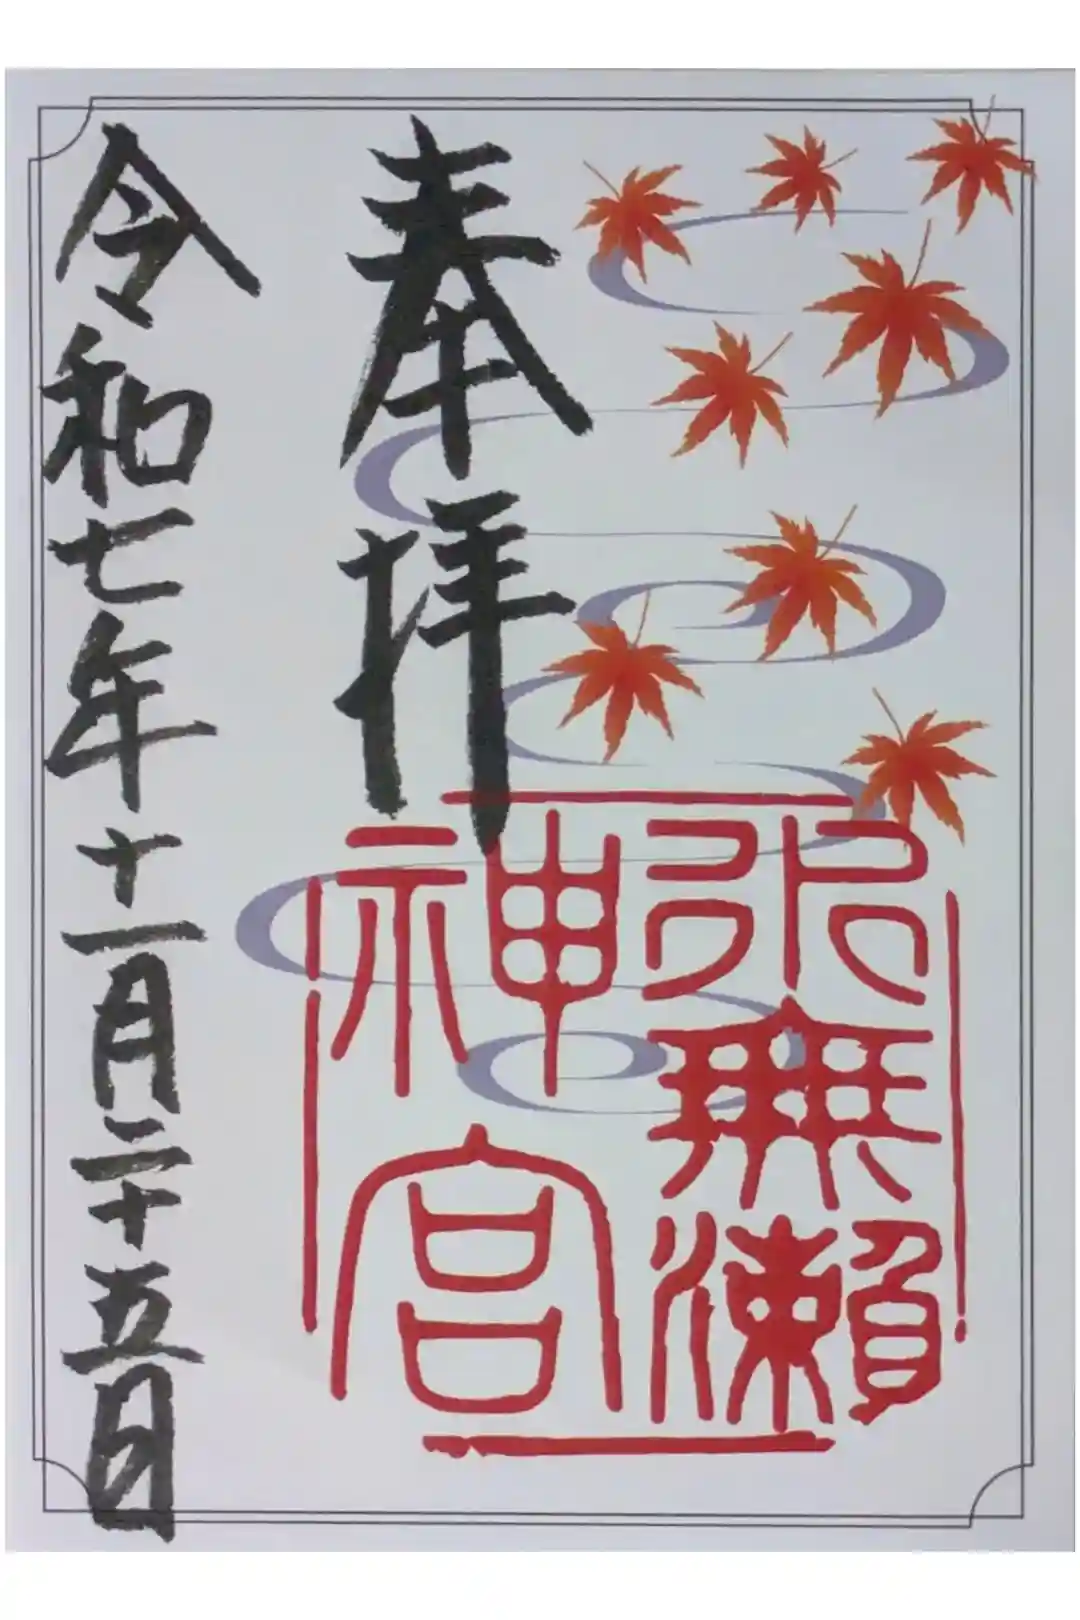 奉拝
水無瀬
神宮
令和七年十一月二十五日